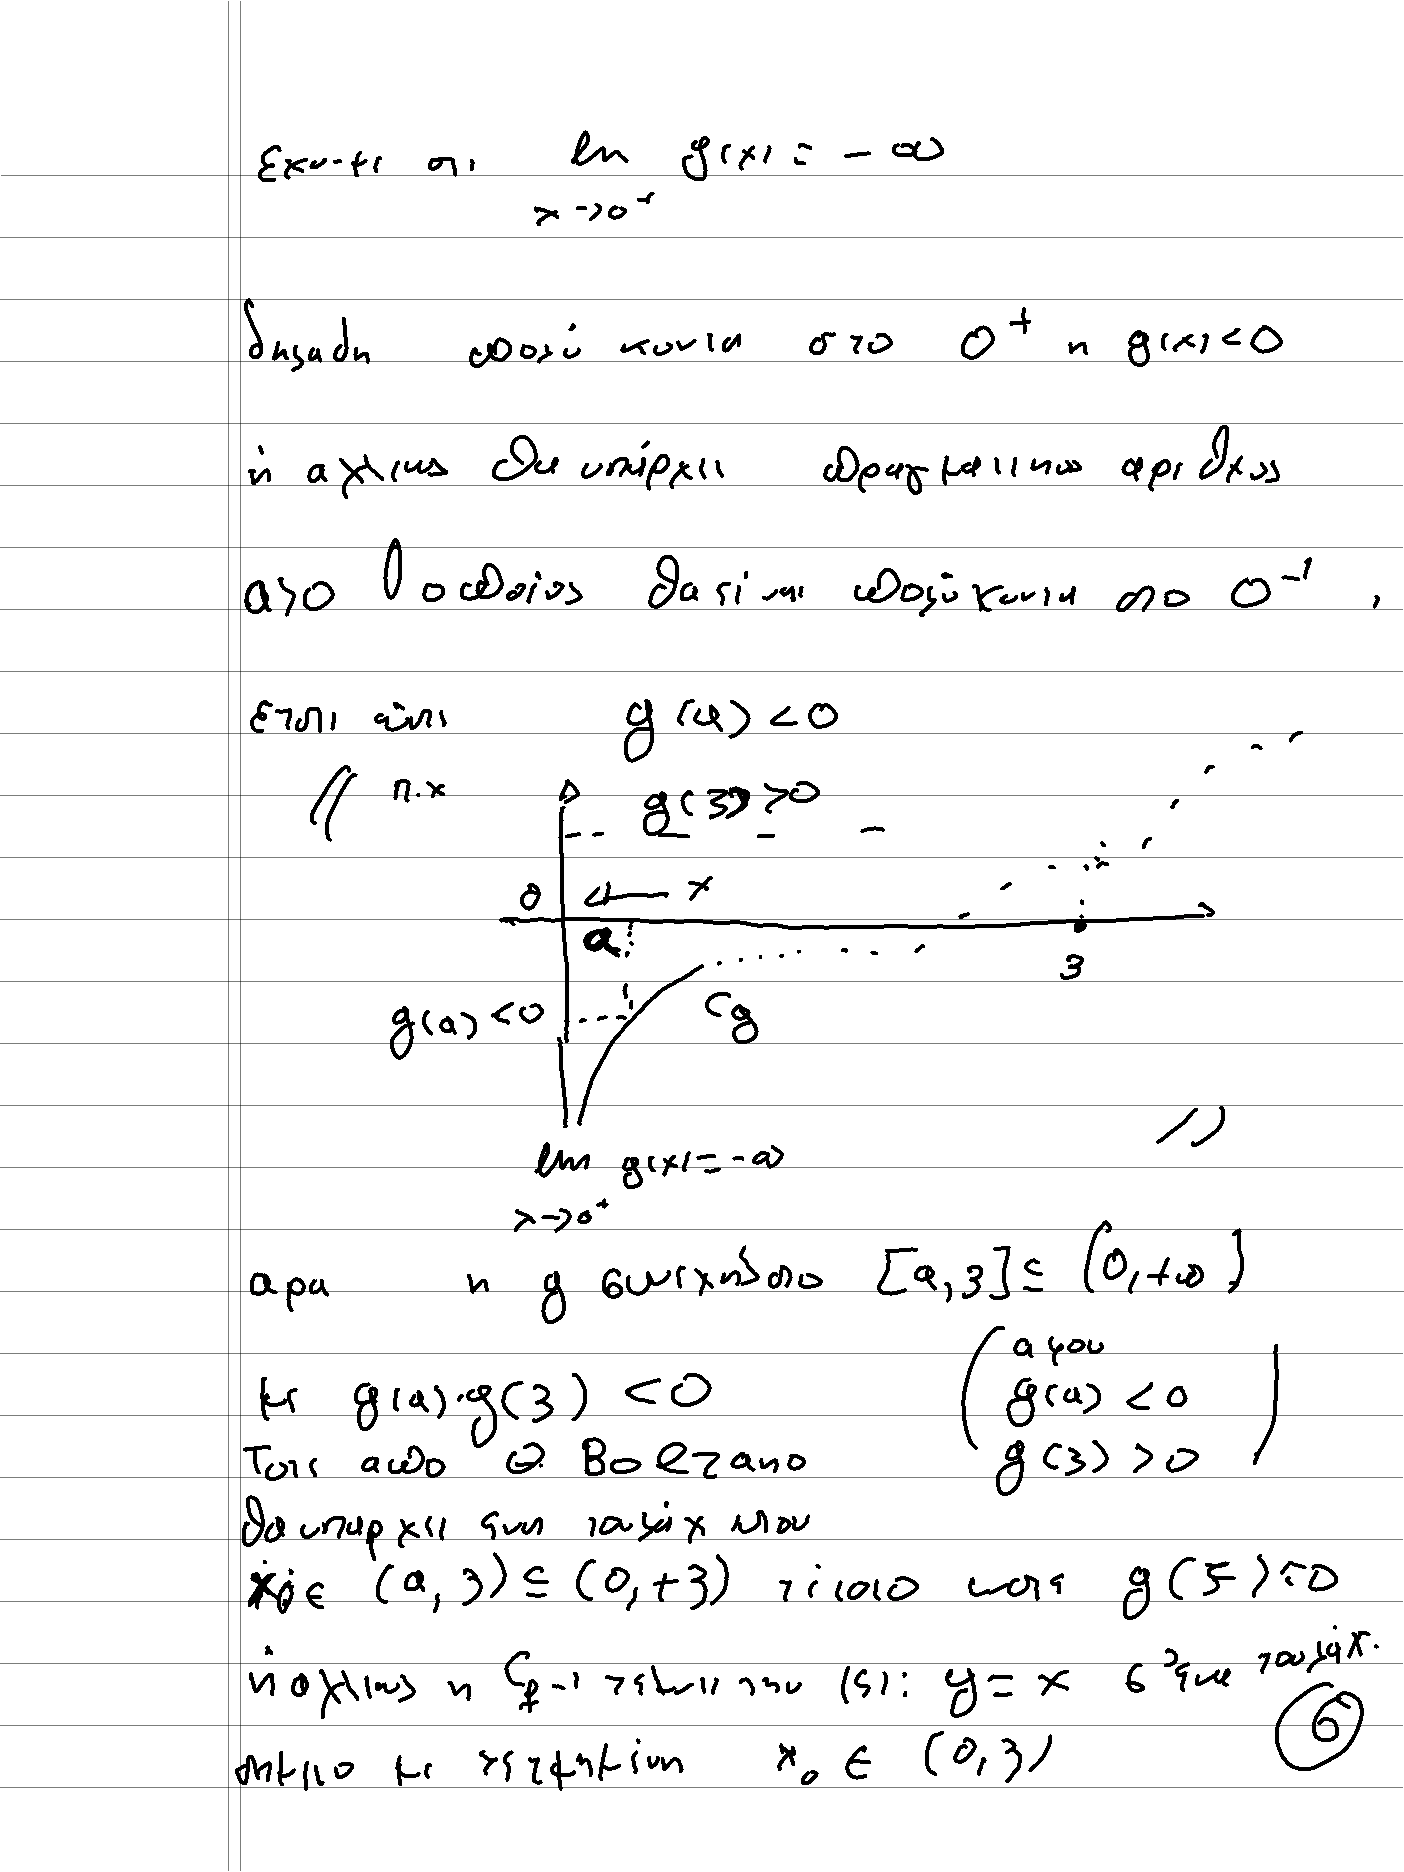 Εχουμε οτι lim g(x) = -∞
x→0⁺
δηλαδη πολύ κοντα στο 0⁺ η g(x)<0
ή αλλιως θα υπάρχει πραγματικος αριθμος
α>0 ο οποίος θα είναι πολύ κοντα στο 0⁺,
ετσι ώστε g(α) <0
// π.χ g(3) >0
0 ← x
α
3
g(α) <0 Cg
//
lim g(x) = -∞
x→0⁺
αρα η g συνεχης στο [α,3]⊆ (0,+∞)
(αφου
με g(α)·g(3) <0 g(α) <0
Τοτε απο Θ. Bolzano g(3) >0)
θα υπαρχει ενα τουλάχιστον
x₀∈ (α,3)⊆(0,+3) τέτοιο ωστε g(ξ)=0
ή αλλιως η Cf-1 τέμνει την (ε): y=x σ'ενα τουλάχ.
σημειο με τετμημένη x₀ ∈ (0,3)
6